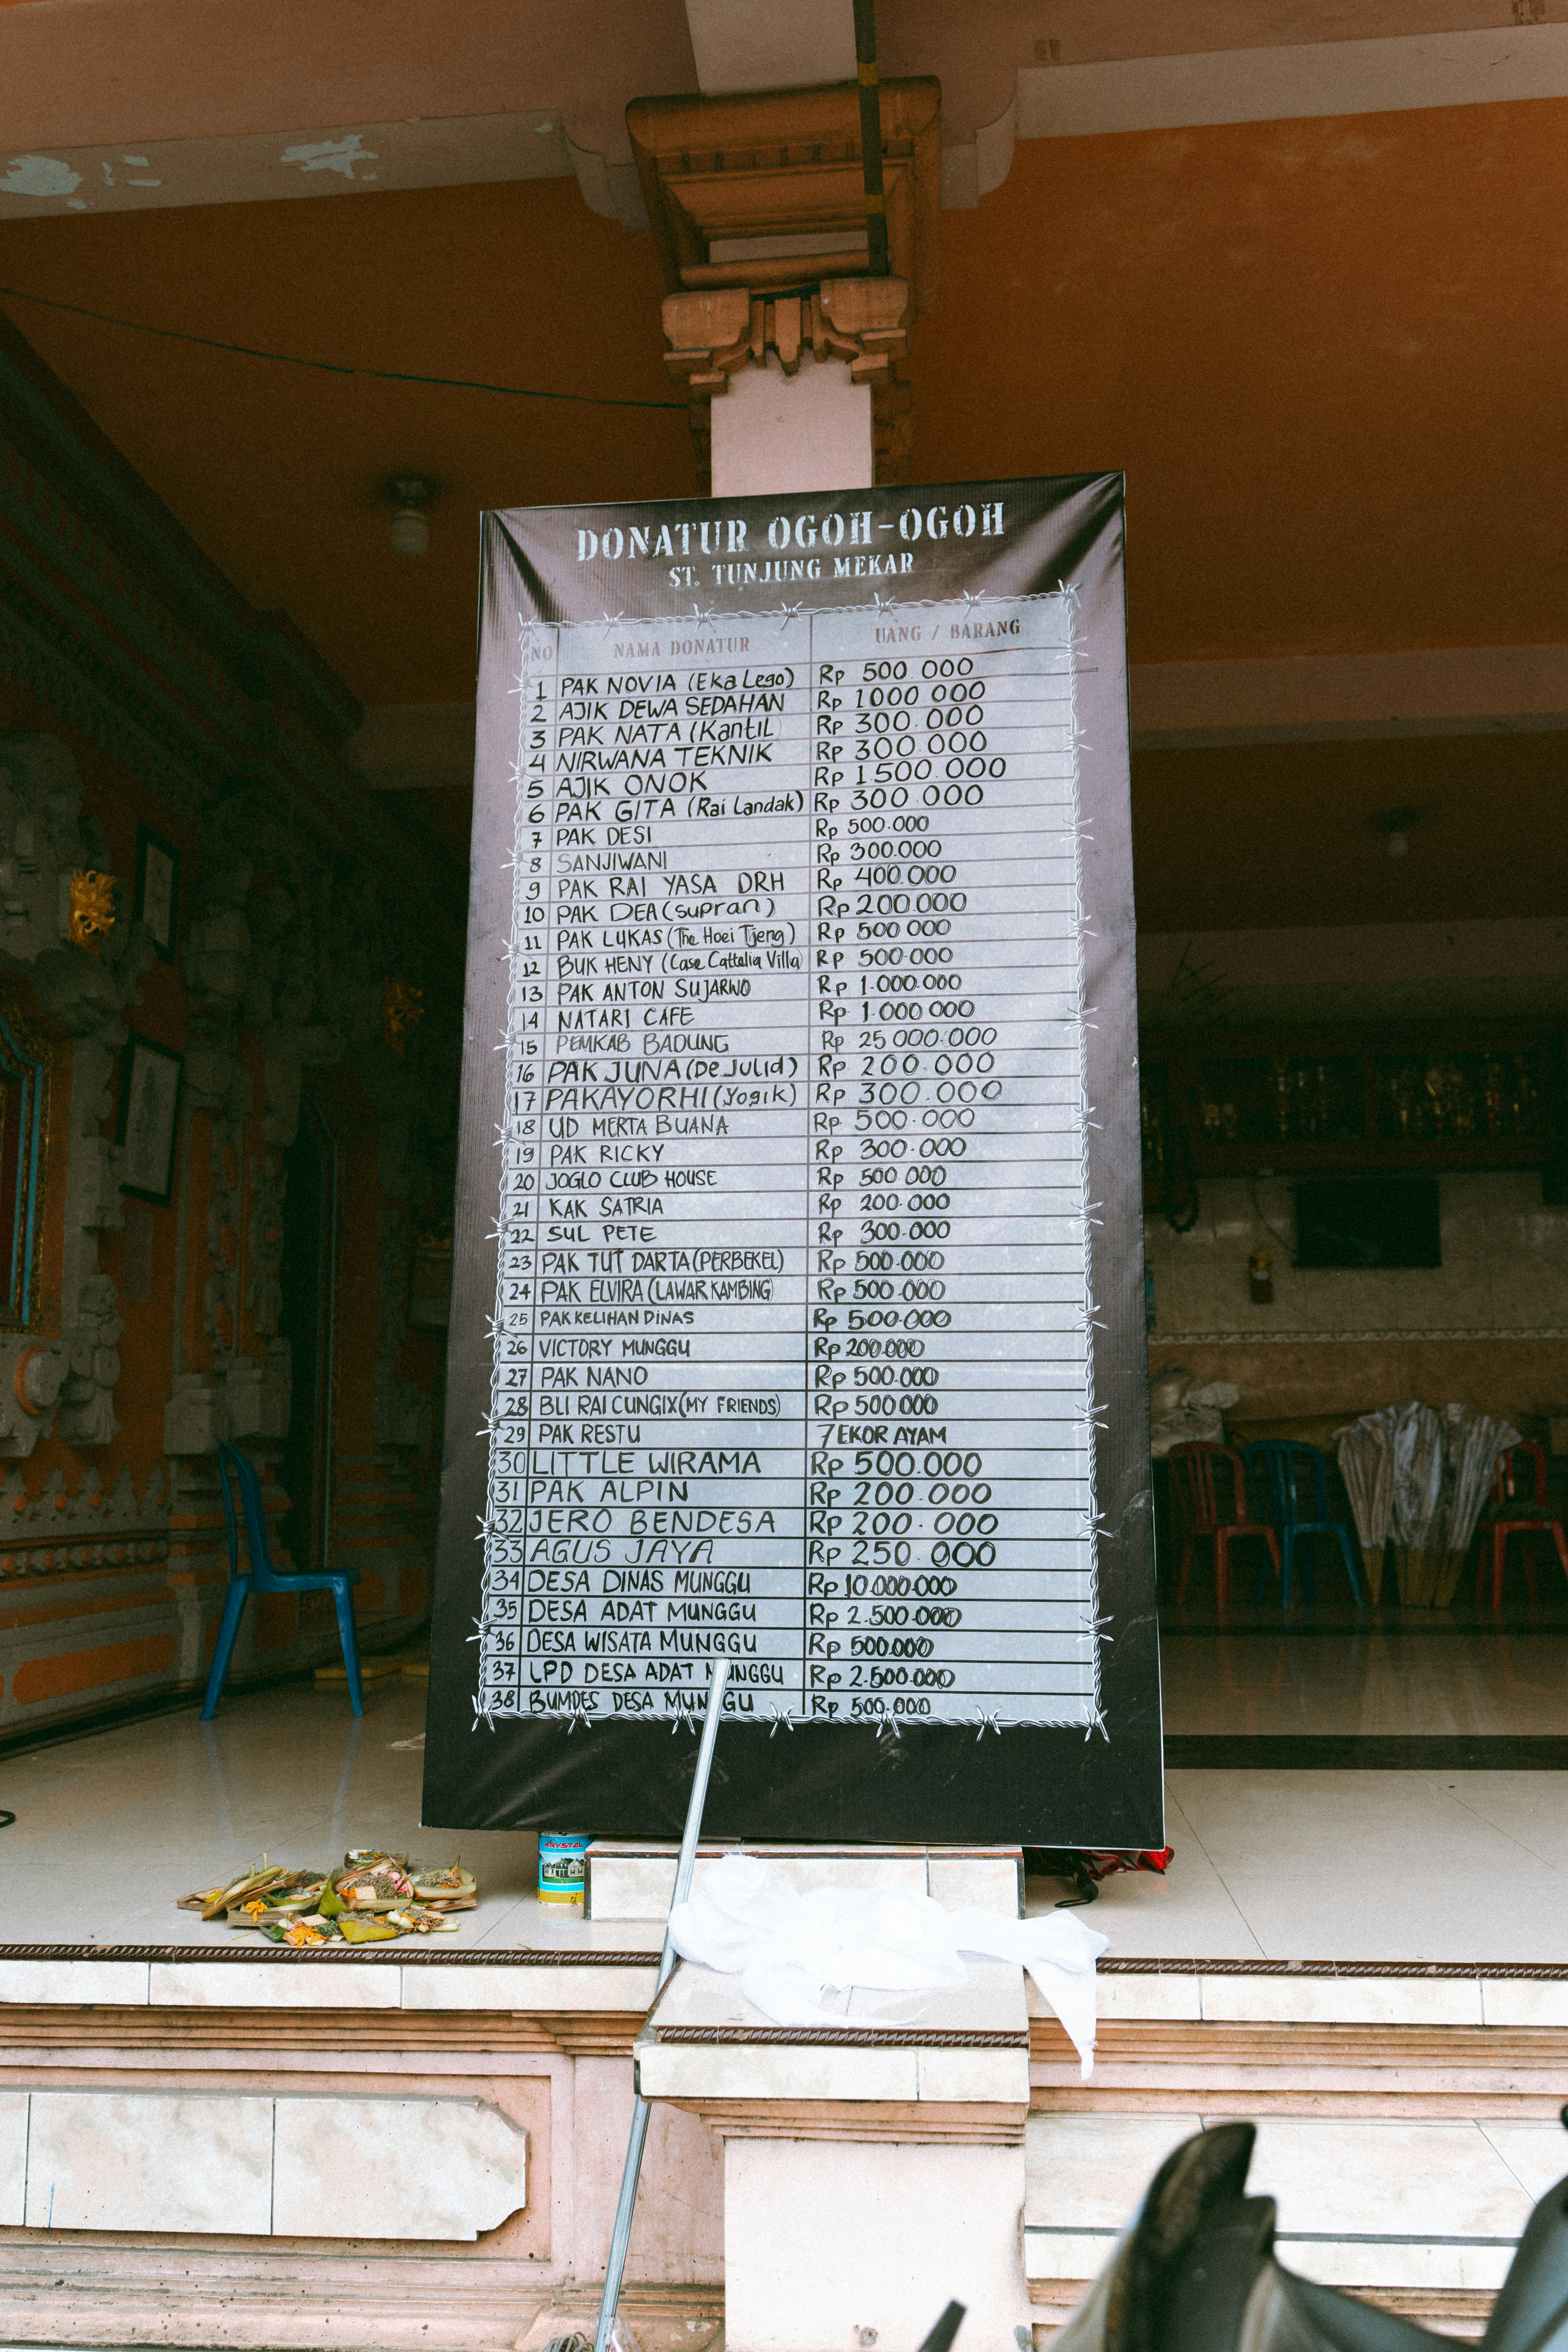 DONATUR OGOH-OGOH
ST. TUNJUNG MEKAR
NO NAMA DONATUR UANG / BARANG
1 PAK NOVIA (Eka Lego) Rp 500.000
2 AJIK DEWA SEDAHAN Rp 1000 000
3 PAK NATA (Kantil Rp 300.000
4 NIRWANA TEKNIK Rp 300.000
5 AJIK ONOK Rp 1.500.000
6 PAK GITA (Rai Landak) Rp 300.000
7 PAK DESI Rp 500.000
8 SANJIWANI Rp 300.000
9 PAK RAI YASA DRH Rp 400.000
10 PAK DEA (supran) Rp 200.000
11 PAK LUKAS (The Hoei Tjeng) Rp 500 000
12 BUK HENY (Case Cattelia Villa) Rp 500.000
13 PAK ANTON SUJARWO Rp 1.000.000
14 NATARI CAFE Rp 1.000 000
15 PEMKAB BADUNG Rp 25 000.000
16 PAK JUNA (De Julid) Rp 200.000
17 PAKAYORHI (Yogik) Rp 300.000
18 UD MERTA BUANA Rp 500.000
19 PAK RICKY Rp 300.000
20 JOGLO CLUB HOUSE Rp 500 000
21 KAK SATRIA Rp 200.000
22 SUL PETE Rp 300.000
23 PAK TUT DARTA (PERBEKEL) Rp 500.000
24 PAK ELVIRA (LAWAR KAMBING) Rp 500.000
25 PAK KELIHAN DINAS Rp 500.000
26 VICTORY MUNGGU Rp 200.000
27 PAK NANO Rp 500.000
28 BLI RAI CUNGIX (MY FRIENDS) Rp 500 000
29 PAK RESTU 7 EKOR AYAM
30 LITTLE WIRAMA Rp 500.000
31 PAK ALPIN Rp 200.000
32 JERO BENDESA Rp 200.000
33 AGUS JAYA Rp 250.000
34 DESA DINAS MUNGGU Rp 10.000.000
35 DESA ADAT MUNGGU Rp 2.500.000
36 DESA WISATA MUNGGU Rp 500.000
37 LPD DESA ADAT MUNGGU Rp 2.500.000
38 BUMDES DESA MUNGGU Rp 500.000